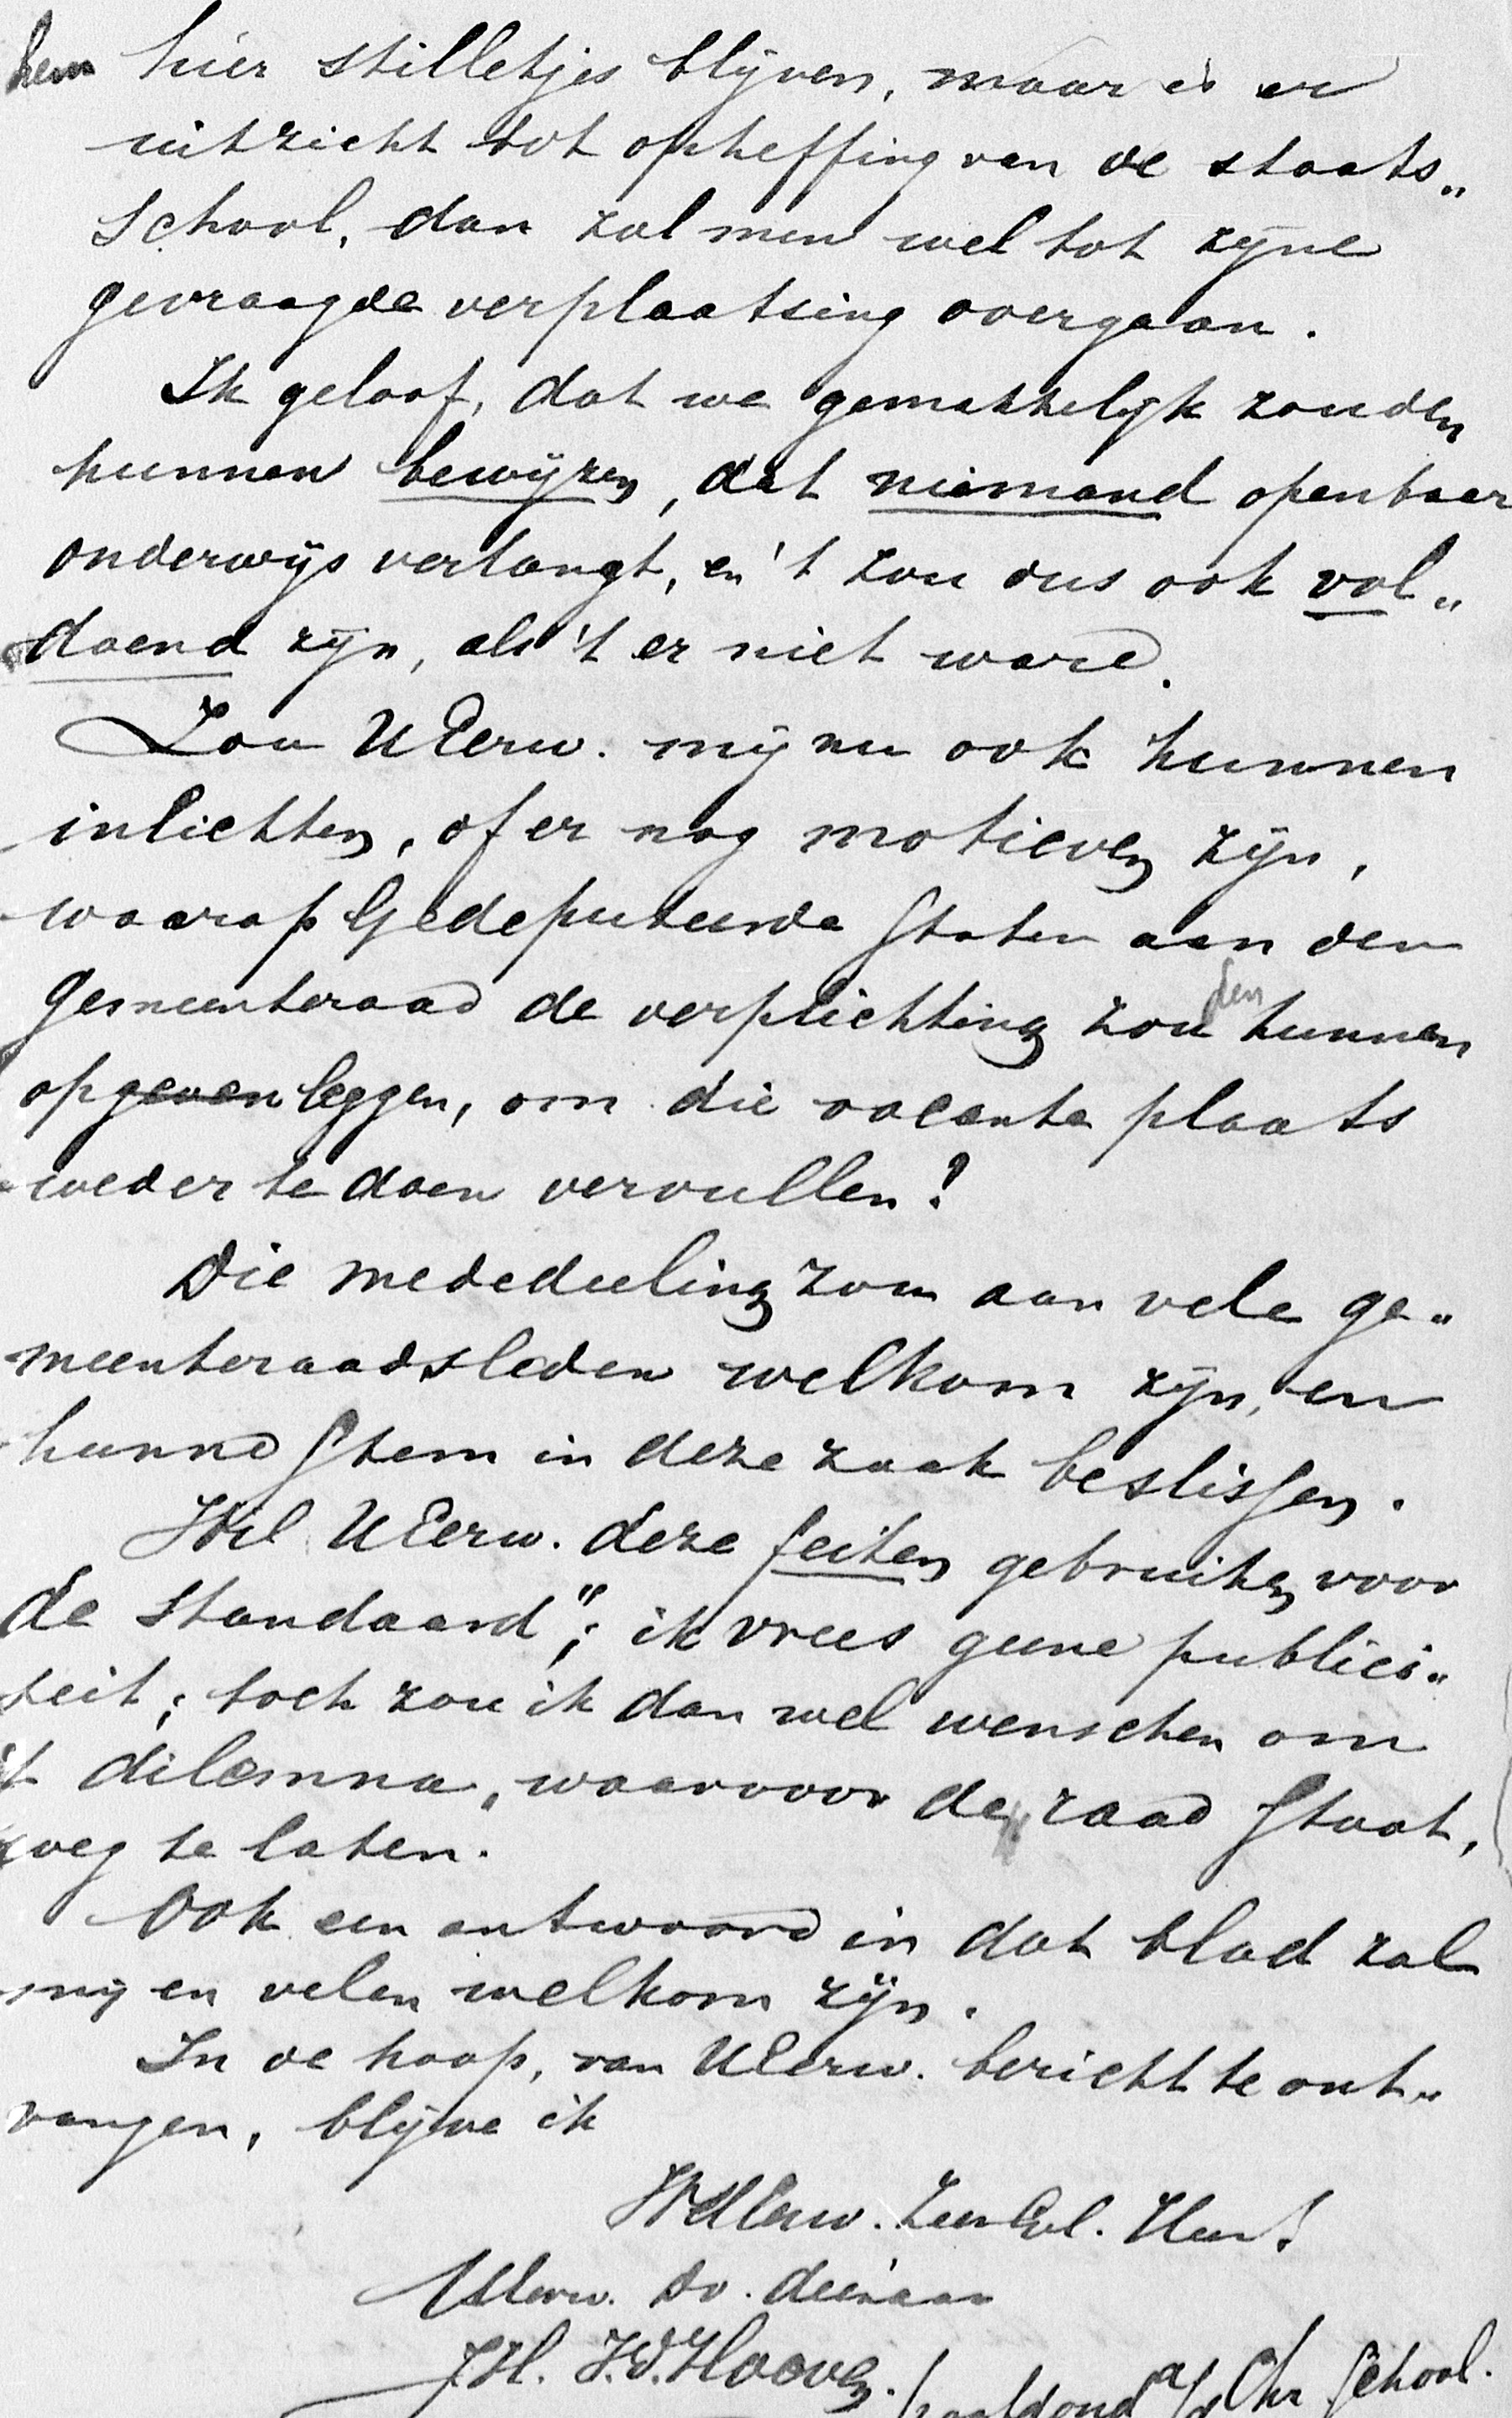 hem hier stilletjes blijven, maar is er
uitzicht tot opheffing van de staats„
school, dan zal men wel tot zijne
gevraagde verplaatsing overgaan.
Ik geloof, dat we gemakkelijk zouden
kunnen bewijzen, dat niemand openbaar
onderwijs verlangt, en 't zou dus ook vol„
doend zijn, als 't er niet ware.
Zou UEerw. mij nu ook kunnen
inlichten, of er nog motieven zijn,
waarop Gedeputeerde Staten aan den
Gemeenteraad de verplichting zouden kunnen
opgeven leggen, om die vacante plaats
weder te doen vervullen?
Die mededeeling zou aan vele ge„
meenteraadsleden welkom zijn, en
hunne stem in deze zaak beslissen.
Wil UEerw. deze feiten gebruiken voor
de Standaard"; ik vrees geene publici„
teit; toch zou ik dan wel wenschen om
't dilemna, waarvoor de raad staat,
weg te laten.
Ook een antwoord in dat blad zal
mij en velen welkom zijn.
In de hoop, van UEerw. bericht te ont„
vangen, blijve ik
WelEerw. ZeerGel. Heer!
UEerw. Dv. dienaar
Hoofdond a/d Chr School.